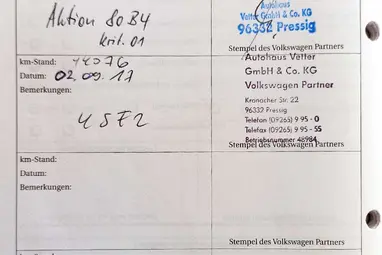 Aktion 80B4
krit. 01
Autohaus
Vetter GmbH & Co. KG
96332 Pressig
Stempel des Volkswagen Partners
km-Stand: 44076
Datum: 02.09.17
Bemerkungen:
45F2
Autohaus Vetter
GmbH & Co. KG
Volkswagen Partner
Kronacher Str. 22
96332 Pressig
Telefon (09265) 9 95 - 0
Telefax (09265) 9 95 - 55
Betriebsnummer 48984
Stempel des Volkswagen Partners
km-Stand:
Datum:
Bemerkungen:
Stempel des Volkswagen Partners